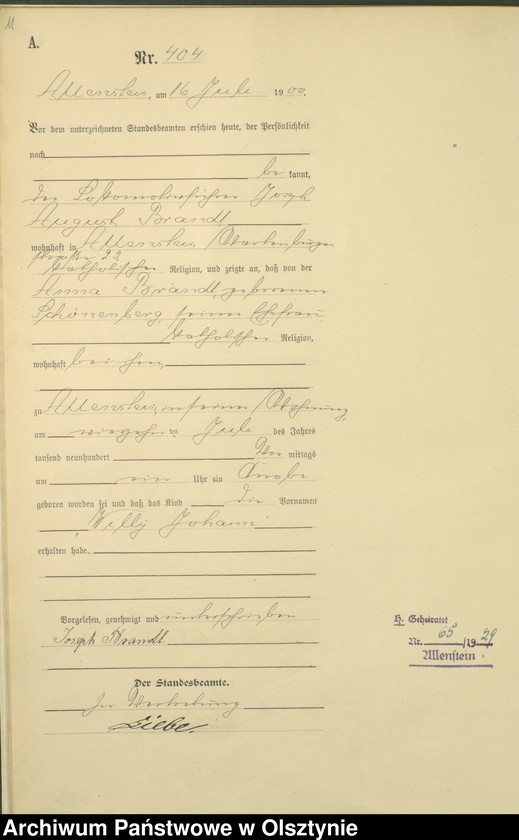 11
A.
Nr. 404
Allenstein, am 16 Juli 1900.
Vor dem unterzeichneten Standesbeamten erschien heute, der Persönlichkeit
nach
be kannt,
der Lokomotivführer Joseph
August Brandt
wohnhaft in Allenstein, Wartenburger
straße 23
katholischer Religion, und zeigte an, daß von der
Anna Brandt, geborenen
Schönenberg, seiner Ehefrau
katholischer Religion,
wohnhaft bei ihm,
zu Allenstein, in seiner Wohnung,
am vierzehn ten Juli des Jahres
tausend neunhundert Vor mittags
um Uhr ein Knabe
geboren worden sei und daß das Kind die Vornamen
Willy Johann
erhalten habe.
Vorgelesen, genehmigt und unterschrieben
Joseph Brandt
Der Standesbeamte.
In Vertretung
Liebe.
H. Geheiratet
Nr. 65 /1929
Allenstein
Archiwum Państwowe w Olsztynie